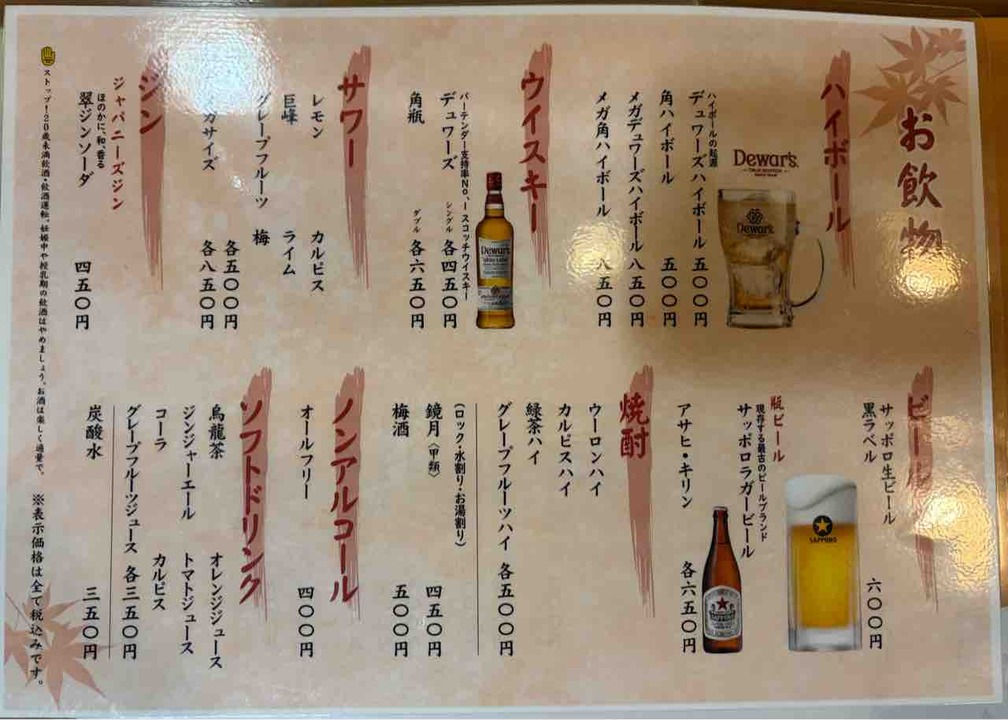 お飲物
ハイボール
Dewar's
ハイボールの起源
デュワーズハイボール 五〇〇円
角ハイボール 五〇〇円
メガデュワーズハイボール 八五〇円
メガ角ハイボール 八五〇円
ウイスキー
バーテンダー支持率No.1スコッチウイスキー
デュワーズ シングル 各四五〇円
角瓶 ダブル 各六五〇円
Dewar's
サワー
レモン カルピス
巨峰 ライム
グレープフルーツ 梅
各五〇〇円
メガサイズ 各八五〇円
ジン
ジャパニーズジン
ほのかに、和、香る
翠ジンソーダ 四五〇円
ビール
サッポロ生ビール
黒ラベル 六〇〇円
SAPPORO
瓶ビール
現存する最古のビールブランド
サッポロラガービール
アサヒ・キリン 各六五〇円
焼酎
ウーロンハイ
カルピスハイ
緑茶ハイ
グレープフルーツハイ 各五〇〇円
(ロック・水割り・お湯割り)
鏡月(甲類) 四五〇円
梅酒 五〇〇円
ノンアルコール
オールフリー 四〇〇円
ソフトドリンク
烏龍茶 オレンジジュース
ジンジャーエール トマトジュース
コーラ カルピス
グレープフルーツジュース 各三五〇円
炭酸水 三五〇円
ストップ!20歳未満飲酒・飲酒運転。妊娠中や授乳期の飲酒はやめましょう。お酒は楽しく適量で。
※表示価格は全て税込みです。